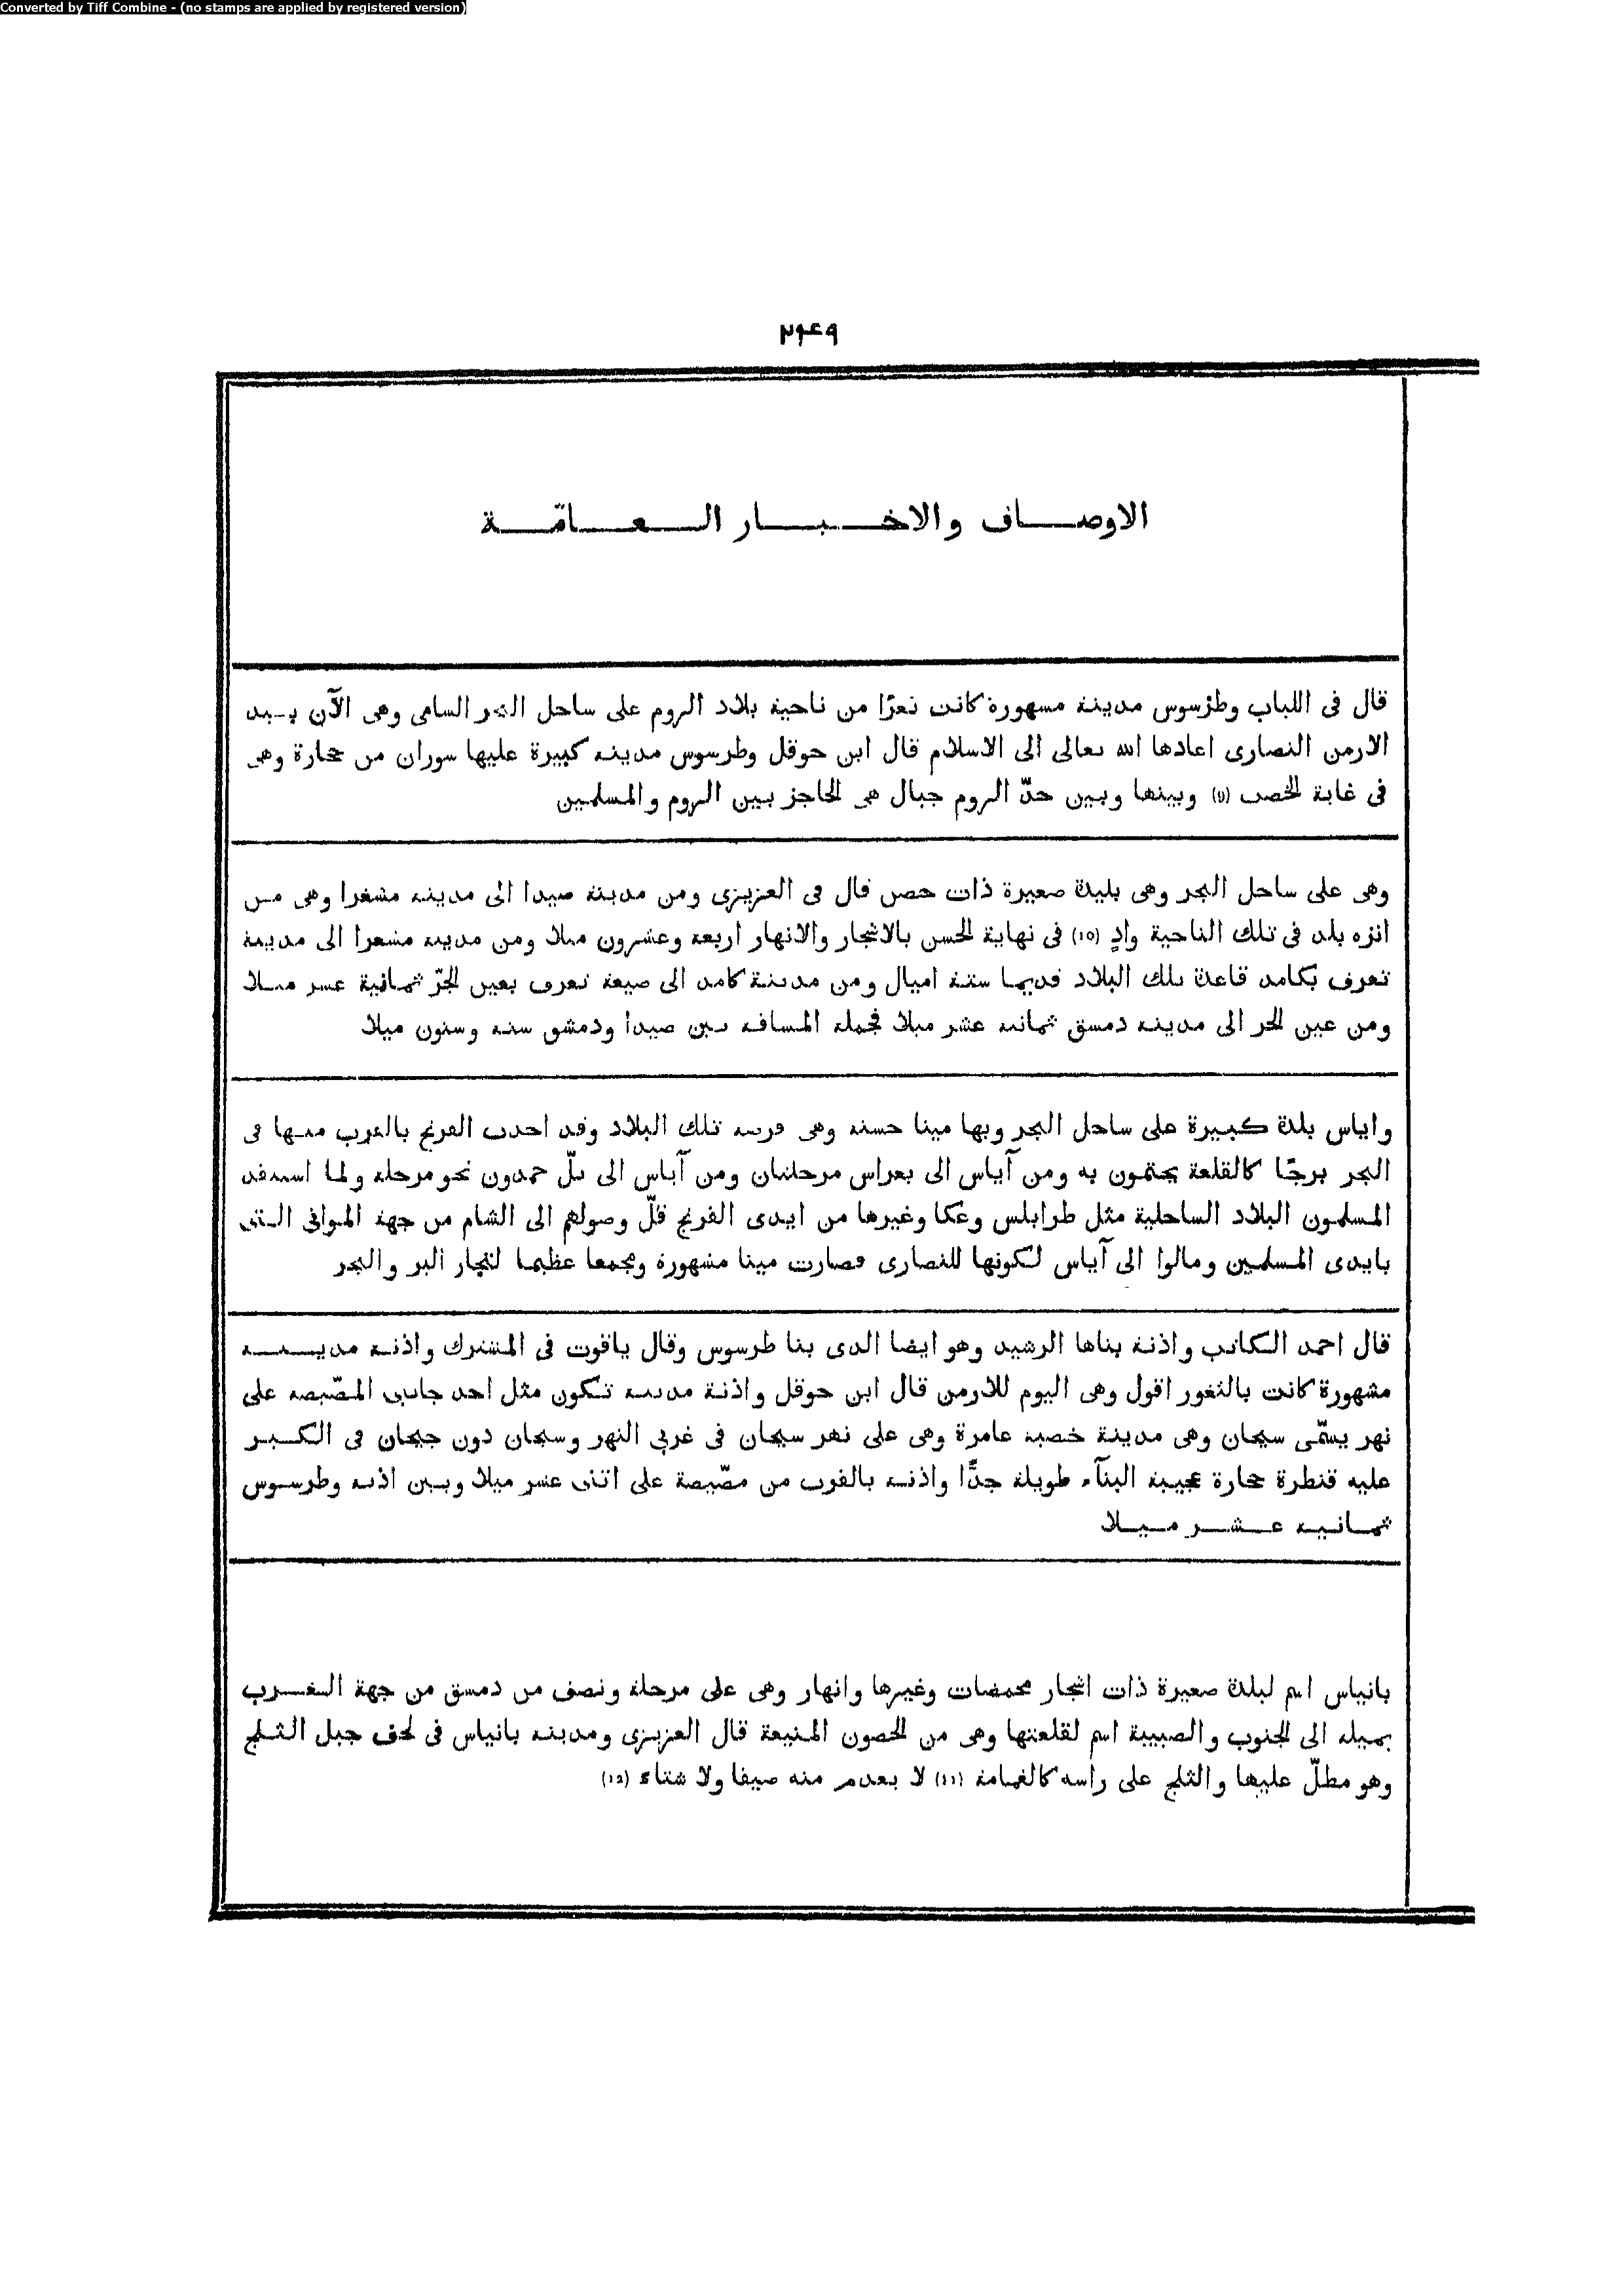 Converted by Tiff Combine - (no stamps are applied by registered version)
٢٤٩
الاوصاف والاخبار العامّة
قال فى اللباب وطرسوس مدينة مشهورة كانت ثغرًا من ناحية بلاد الروم على ساحل البحر الشامى وهى الآن بيد
الارمن النصارى اعادها الله تعالى الى الاسلام قال ابن حوقل وطرسوس مدينة كبيرة عليها سوران من حجارة وهى
فى غاية الخصب (9) وبينها وبين حدّ الروم جبال هى الحاجز بين الروم والمسلمين
وهى على ساحل البحر وهى بليدة صغيرة ذات حصن قال فى العزيزى ومن مدينة صيدا الى مدينة مشغرا وهى من
انزه بلد فى تلك الناحية وادٍ (10) فى نهاية الحسن بالاشجار والانهار اربعة وعشرون ميلا ومن مدينة مشغرا الى مدينة
تعرف بكامد قاعدة تلك البلاد قديما ستة اميال ومن مدينة كامد الى ضيعة تعرف بعين الجرّ ثمانية عشر ميلا
ومن عين الجر الى مدينة دمشق ثمانية عشر ميلا فجملة المسافة بين صيدا ودمشق ستة وستون ميلا
واياس بلدة كبيرة على ساحل البحر وبها مينا حسنة وهى فرضة تلك البلاد وقد احدث الفرنج بالقرب منها فى
البحر برجًا كالقلعة يحتمون به ومن آياس الى بغراس مرحلتان ومن آياس الى تلّ حمدون نحو مرحلة ولما استنقذ
المسلمون البلاد الساحلية مثل طرابلس وعكا وغيرها من ايدى الفرنج قلّ وصولهم الى الشام من جهة الموانى التى
بايدى المسلمين ومالوا الى آياس لكونها للنصارى فصارت مينا مشهورة ومجمعا عظيما لتجار البر والبحر
قال احمد الكاتب واذنة بناها الرشيد وهو ايضا الذى بنا طرسوس وقال ياقوت فى المشترك واذنة مدينة
مشهورة كانت بالثغور اقول وهى اليوم للارمن قال ابن حوقل واذنة مدينة تكون مثل احد جانبى المصّيصة على
نهر يسمّى سيحان وهى مدينة خصبة عامرة وهى على نهر سيحان فى غربى النهر وسيحان دون جيحان فى الكبر
عليه قنطرة حجارة عجيبة البنآء طويلة جدًّا واذنة بالقرب من مصّيصة على اثنى عشر ميلا وبين اذنة وطرسوس
ثمانية عشر ميلا
بانياس اسم لبلدة صغيرة ذات اشجار محمضات وغيرها وانهار وهى على مرحلة ونصف من دمشق من جهة الغرب
بميلة الى الجنوب والصبيبة اسم لقلعتها وهى من الحصون المنيعة قال العزيزى ومدينة بانياس فى لحف جبل الثلج
وهو مطلّ عليها والثلج على راسه كالغمامة (11) لا يعدم منه صيفا ولا شتاء (12)